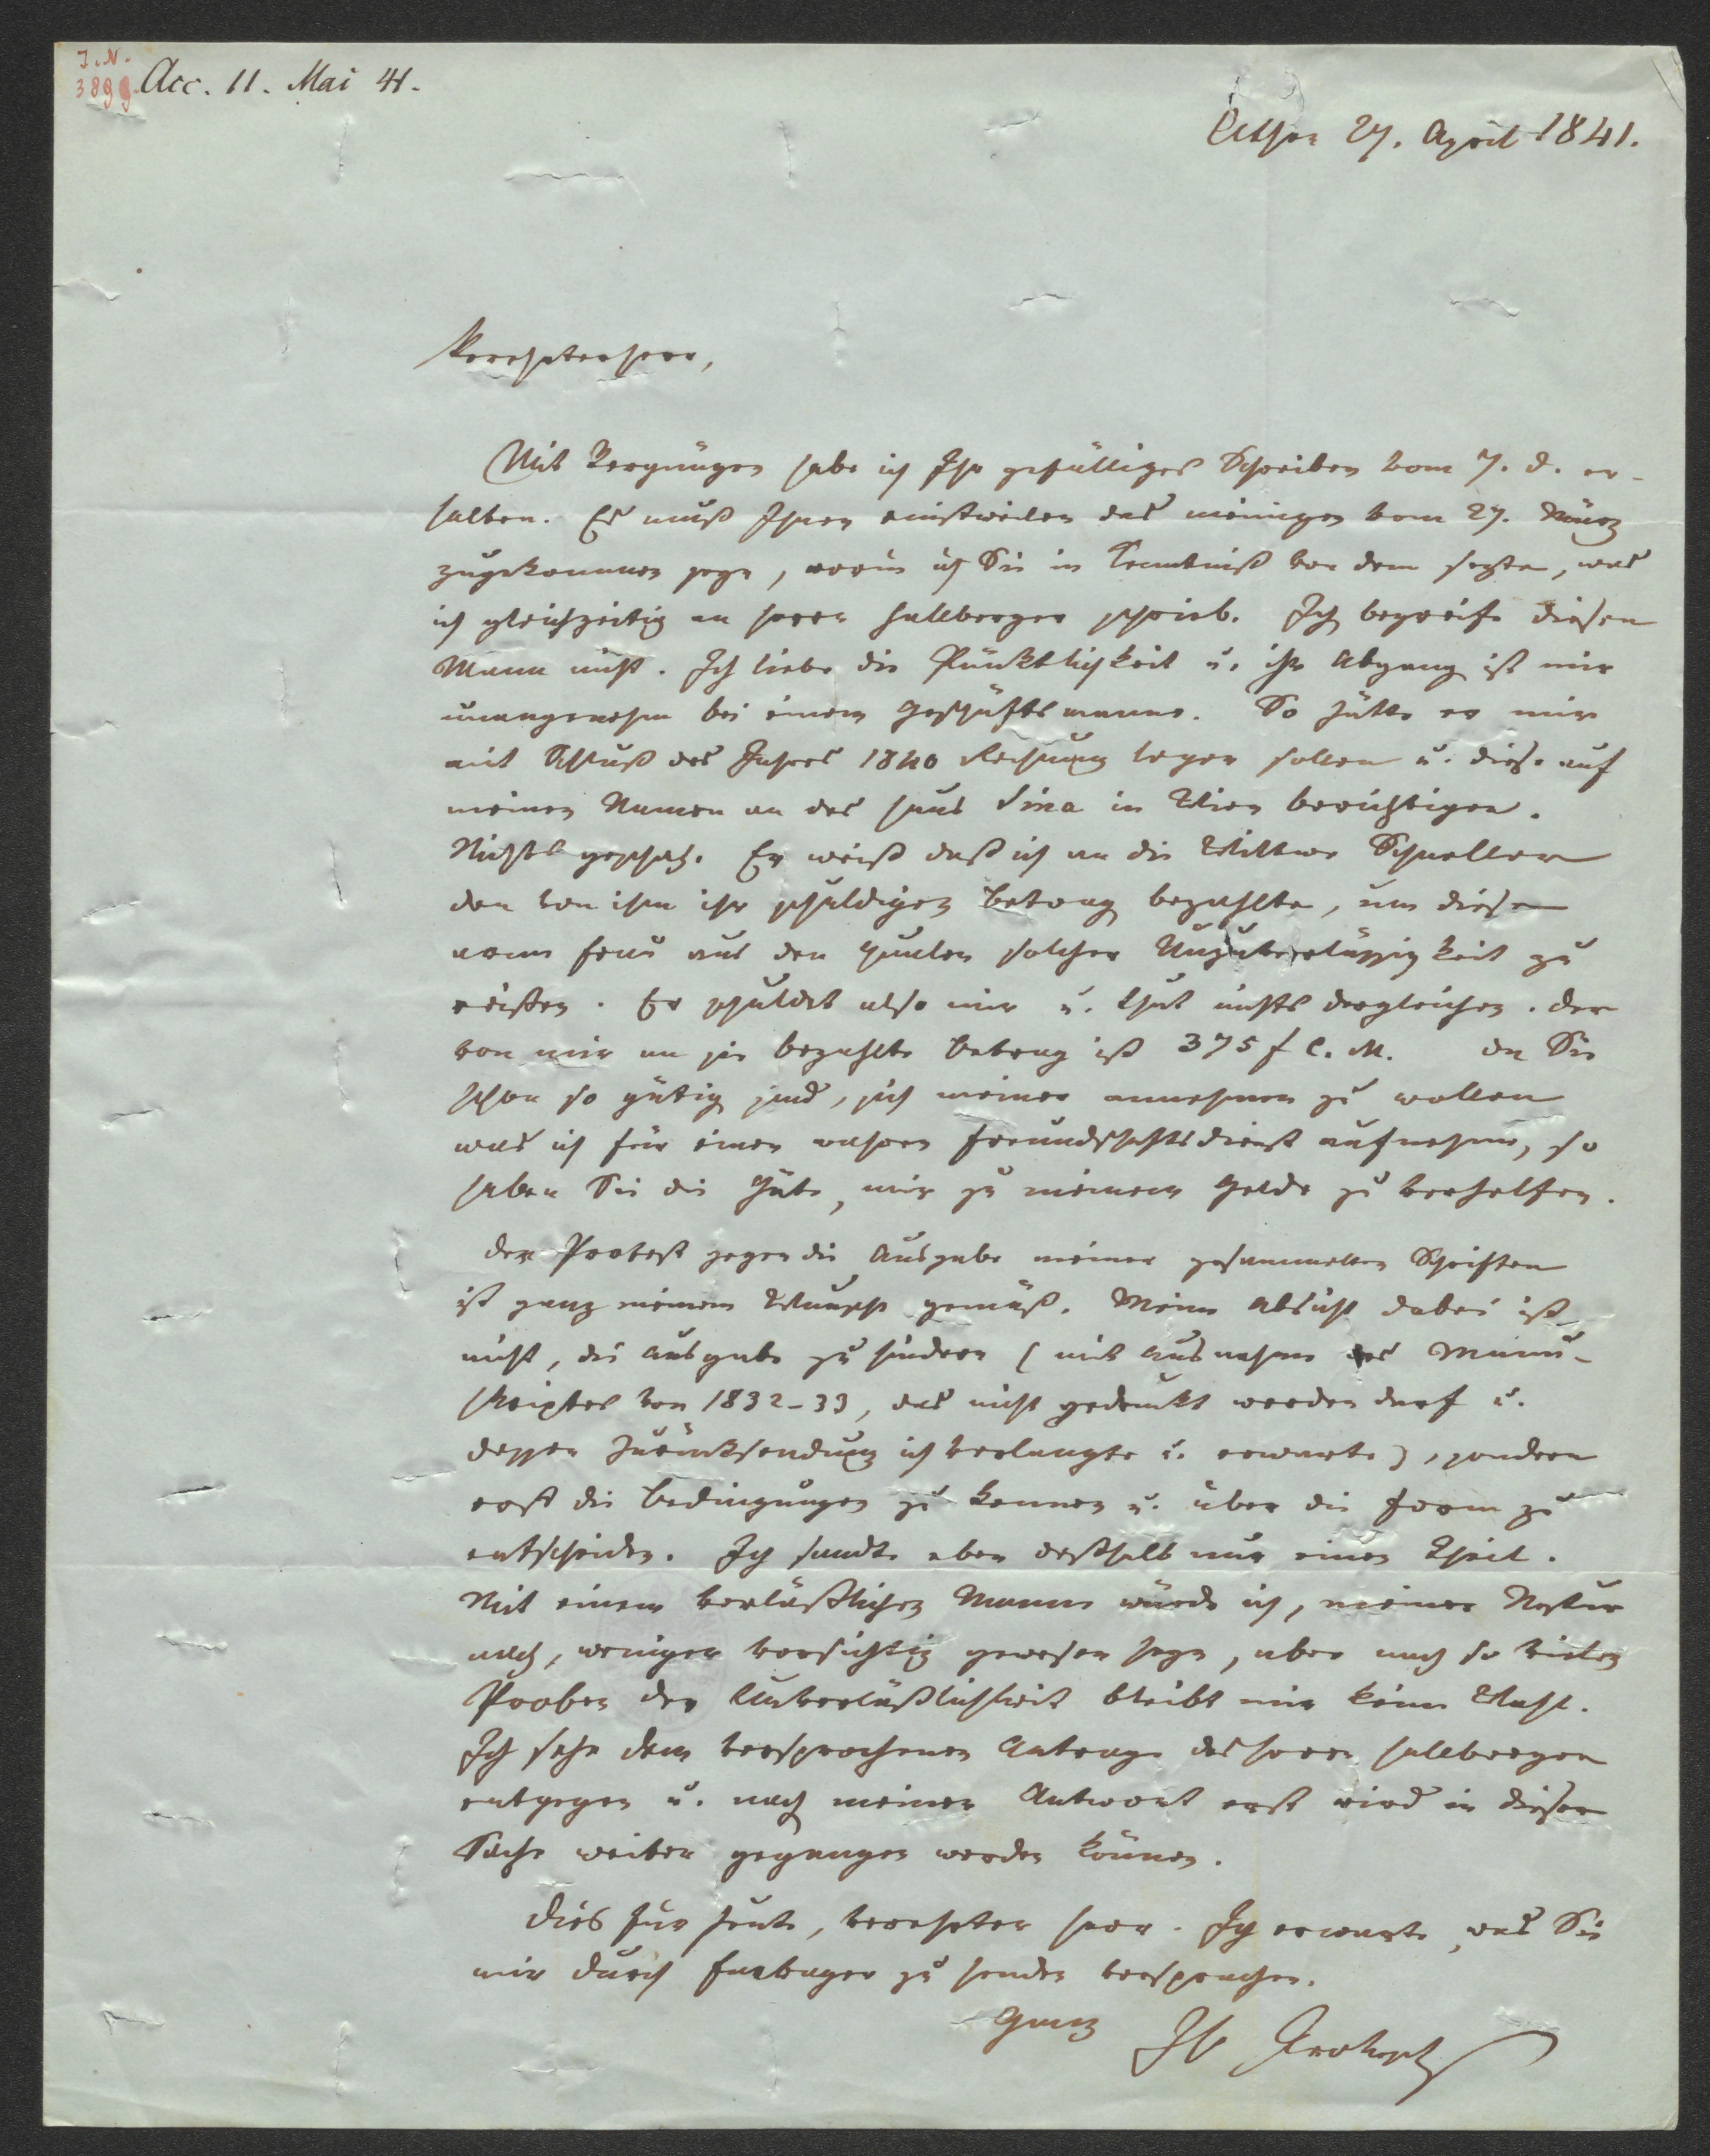 J. N.
3899.
Acc. 11. Mai 41.
Athen 27. April 1841.
Verehrter Herr,
Mit Vergnügen habe ich Ihr gefälliges Schreiben vom 7. d. er-
halten. Es muß Ihnen einstweilen das meinige vom 27. März
zugekommen seyn, worin ich Sie in Kenntniß von dem setzte, was
ich gleichzeitig an Herrn Hallberger schrieb. Ich begreife diesen
Mann nicht. Ich liebe die Pünktlichkeit u. ihr Abgang ist mir
unangenehm bei einem Geschäftsmanne. So hätte er mir
mit Schluß des Jahres 1840 Rechnung legen sollen u. diese auf
meinen Namen an das Haus Sina in Wien berichtigen.
Nichts geschah. Er weiß daß ich an die Wittwe Schneller
den von ihm ihr schuldigen Betrag bezahlte, um diese
arme Frau aus den Qualen solcher Unzuverlässigkeit zu
reißen. Er schuldet also mir u. thut nichts dergleichen. Der
von mir an sie bezahlte Betrag ist 375 f C. M. Da Sie
schon so gütig sind, sich meiner annehmen zu wollen
was ich für einen wahren Freundschaftsdienst aufnehme, so
haben Sie die Güte, mir zu meinem Gelde zu verhelfen.
Der Protest gegen die Ausgabe meiner gesammelten Schriften
ist ganz meinem Wunsche gemäß. Meine Absicht dabei ist
nicht, die Ausgabe zu hindern (mit Ausnahme des Manu-
skriptes von 1832-33, das nicht gedruckt werden darf u.
dessen Zurücksendung ich verlangte u. erwarte), sondern
erst die Bedingungen zu kennen u. über die Form zu
entscheiden. Ich sandte eben deßhalb nur einen Theil.
Mit einem verläßlichen Manne würde ich, meiner Natur
nach, weniger vorsichtig gewesen seyn, aber nach so vielen
Proben der Unverläßlichkeit bleibt mir keine Wahl.
Ich sehe dem versprochenen Antrage des Herrn Hallberger
entgegen u. nach meiner Antwort erst wird in dieser
Sache weiter gegangen werden können.
Dies für heute, verehrter Herr. Ich erwarte, was Sie
mir durch zu senden versprachen.
Ganz Ihr Prokesch